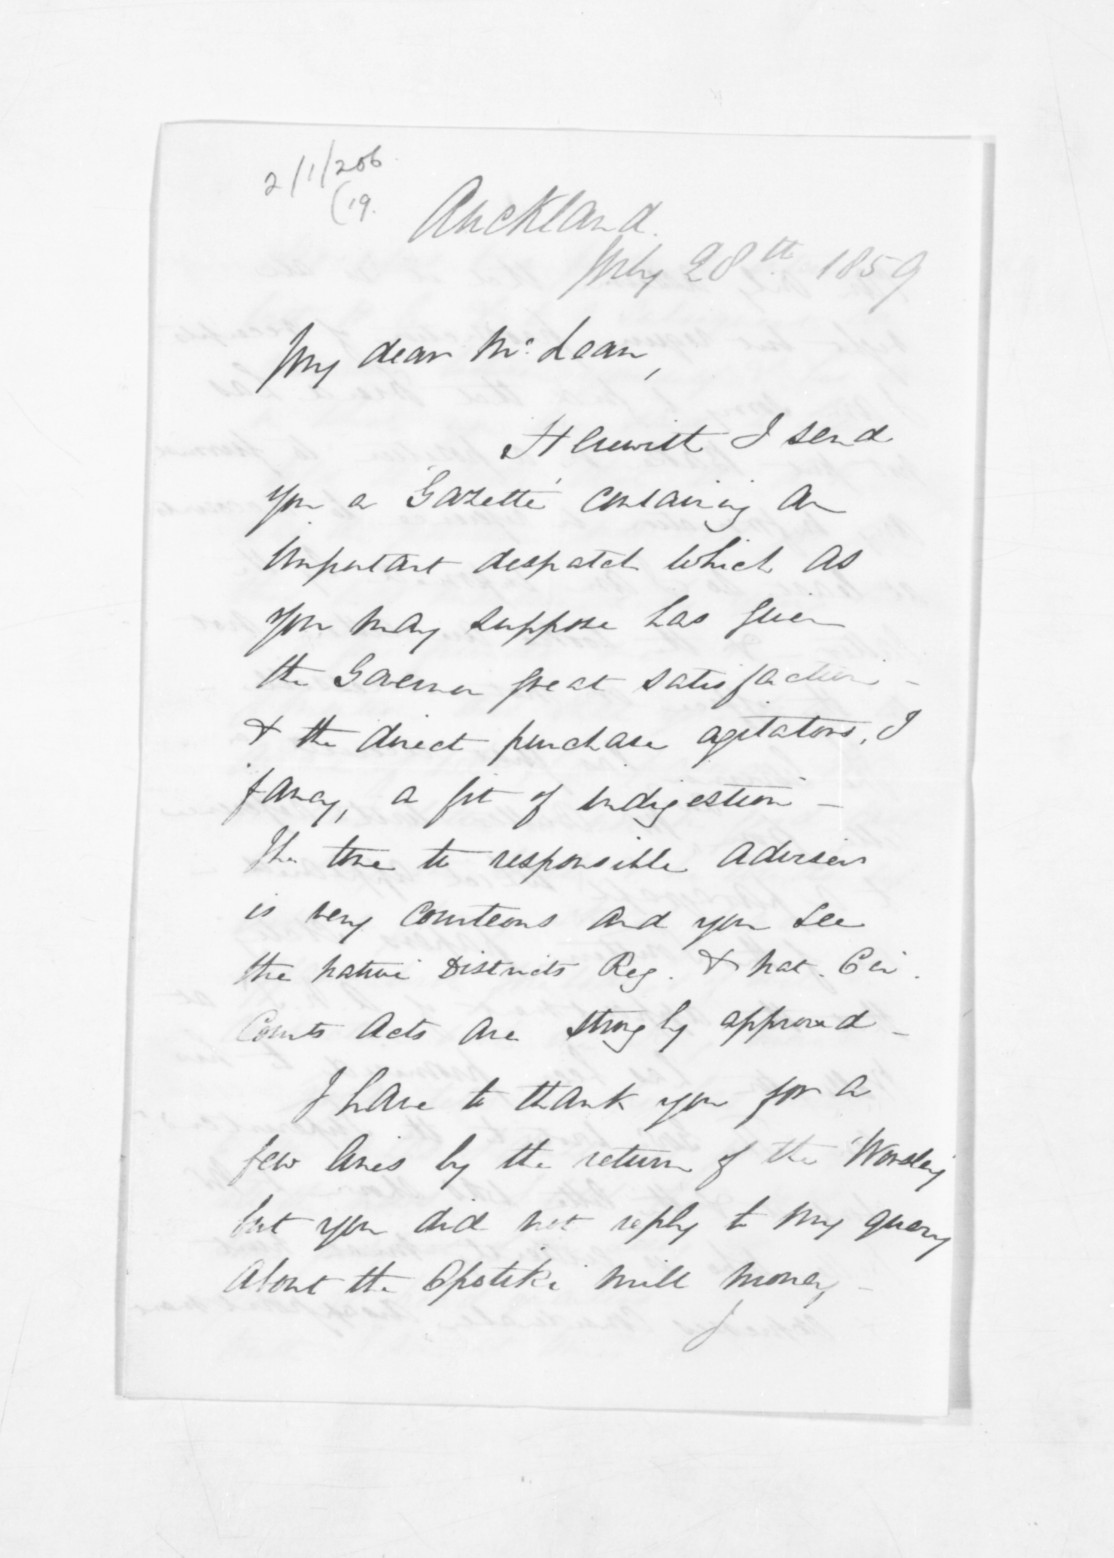 2/1/206
(19.
Auckland.
July 28th 1859
My dear McLean,
Herewith I send
you a 'Gazette' containing an
important despatch which as
you may suppose has given
the Governor great satisfaction -
& the direct purchase agitators, I
fancy, a fit of indigestion -
The tone to responsible advisers
is very courteous and you see
the Native Districts Reg. & Nat. Cir.
Courts Acts are strongly approved -
I have to thank you for a
few lines by the return of the 'Wonsley'
but you did not reply to my query
about the Opotiki mill money -
I